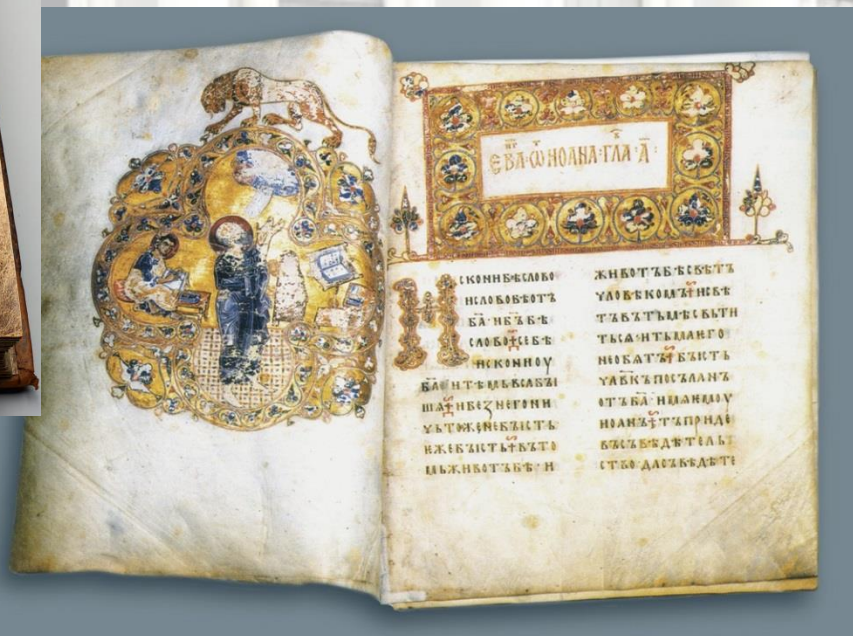 ЕВА·Ѿ ИОАНА·ГЛА·А҃:
ИСКОНИБѢСЛОВО
ИСЛОВОБѢОТЪ
Б҃А·ИБ҃ЪБѢ
СЛОВО☩СЕБѢ
ИСКОНИОУ
Б҃А☩ИТѢМЬВСАБЫ
ШѦ☩ИБЕЗНЕГОНИ
ЧЬТОЖЕНЕБЫСТЬ
ѤЖЕБЫСТЬ☩ВЪТО
МЬЖИВОТЪБѢ·И
ЖИВОТЪБѢСВѢТЪ
ЧЛОВѢКОМЪ☩ИСВѢ
ТЪВЪТЬМѢСВЬТИ
ТЬСѦ·ИТЬМАѤГО
НЕОБѦТЪ☩БЫСТЬ
ЧЛ҃ВКЪПОСЪЛАНЪ
ОТЪБ҃А·ИМѦѤМОУ
ИОАНЪ☩ТЪПРИДЕ
ВЪСЪВѢДѢТЕЛЬ
СТВО·ДАСЪВѢДѢТЕ